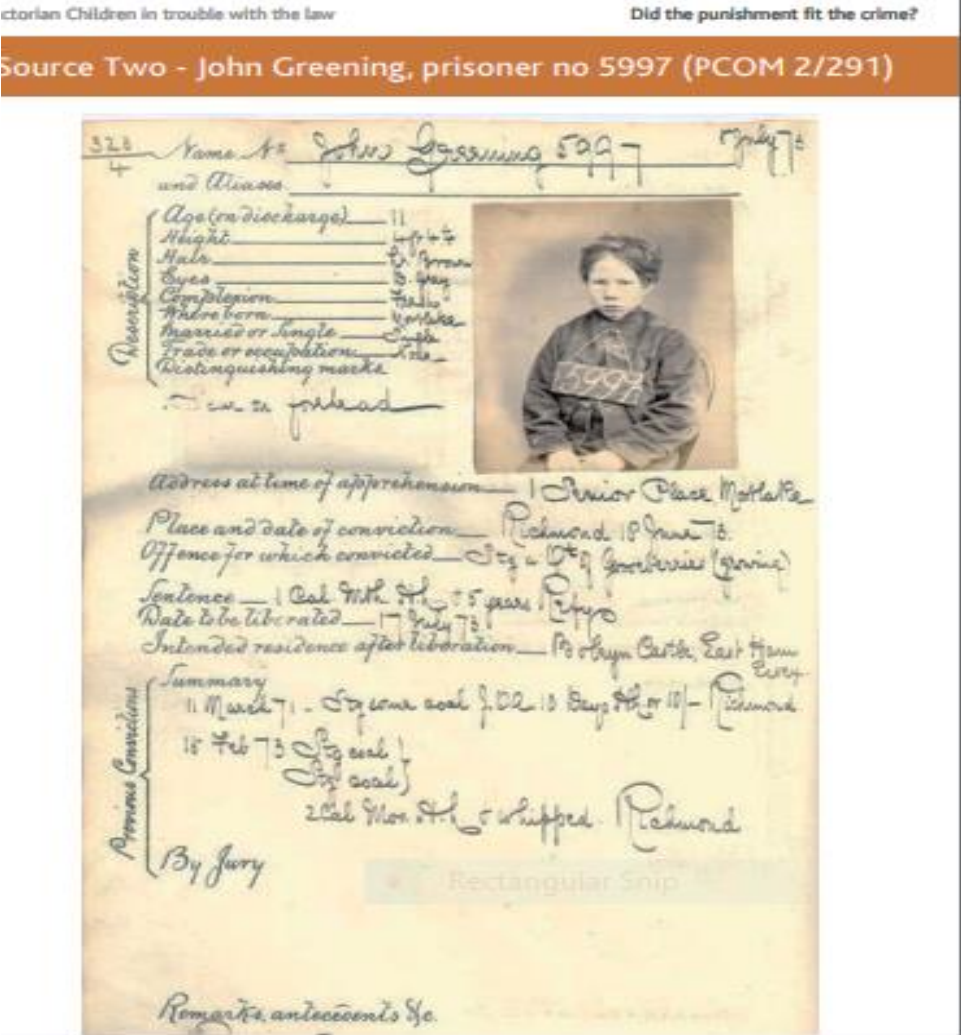 ctorian Children in trouble with the law
Did the punishment fit the crime?
Source Two - John Greening, prisoner no 5997 (PCOM 2/291)
323
4
Name No John Greening 5997
July 73
and Aliases
Description
Age (on discharge) 11
Height
Hair Brown
Eyes Gray
Complexion
Where born Mortlake
Married or Single Single
Trade or occupation
Distinguishing marks
on forehead
5997
Address at time of apprehension 1 Place Mortlake
Place and date of conviction Richmond 18 June 73.
Offence for which convicted Stg Gooseberries (growing)
Sentence 1 Cal Mth & 5 years Refy
Date to be liberated 17 July 73
Intended residence after liberation Boleyn Castle, East Ham
Essex
Previous Convictions
Summary
11 March 71 - Stg some coal 10 Days or 10/- Richmond
18 Feb 73 Stg coal }
Stg coal }
2 Cal Mon & whipped Richmond
By Jury
Rectangular Snip
Remarks, antecedents &c.